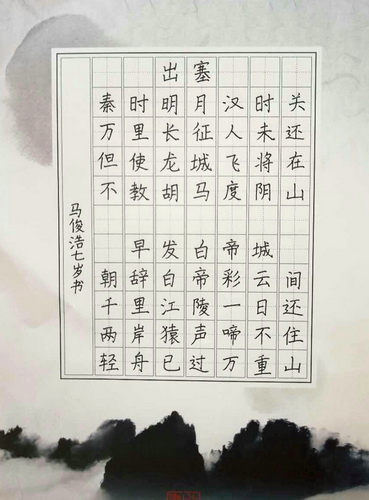 出塞
秦时明月汉时关
万里长征人未还
但使龙城飞将在
不教胡马度阴山
早发白帝城
朝辞白帝彩云间
千里江陵一日还
两岸猿声啼不住
轻舟已过万重山
马俊浩七岁书